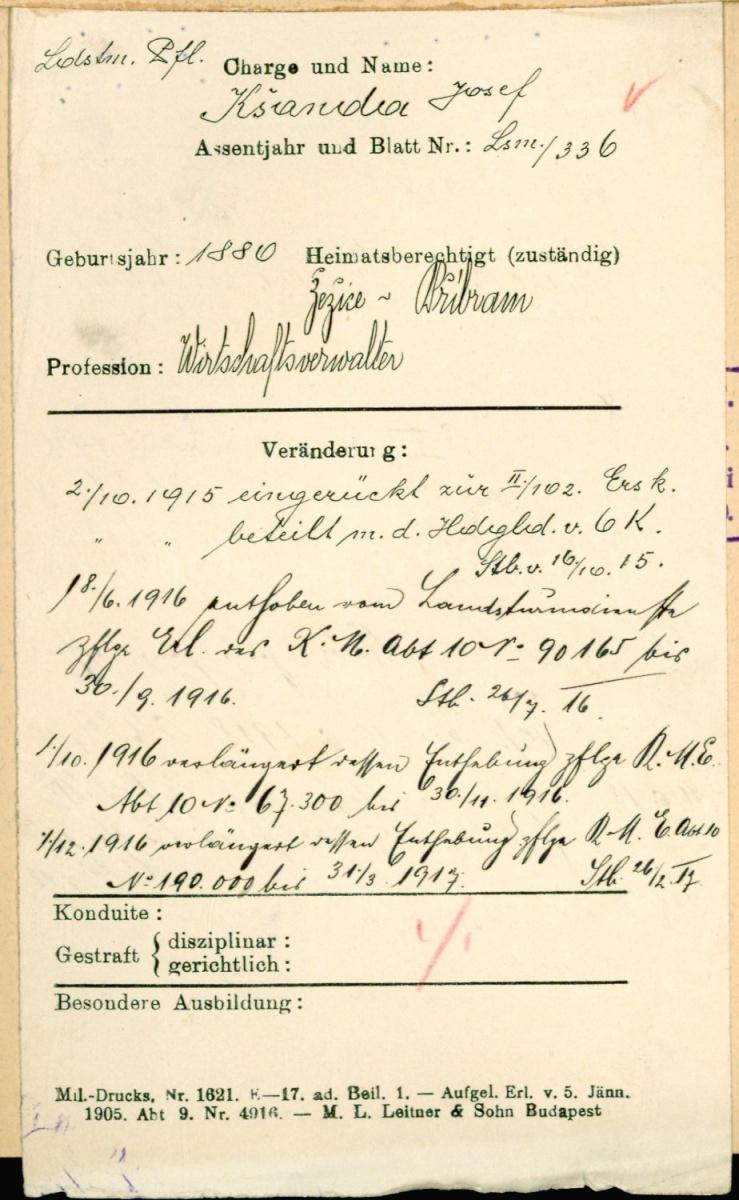 Ldstm. Pfl.
Charge und Name:
Kšanda Josef
Assentjahr und Blatt Nr.: Lsm./336
Geburtsjahr: 1880 Heimatsberechtigt (zuständig)
Žežice - Přibram
Profession: Wirtschaftsverwalter
Veränderung:
2./10. 1915 eingerückt zur II/102. Ersk.
" " beteilt m. d. Hdgld. v. 6 K.
Stb. v. 16/10. 15.
18./6. 1916 enthoben vom Landsturmdienste
zflge Erl. des K. M. Abt 10 No 90165 bis
30./9. 1916. Stb. 26/7. 16.
1./10. 1916 verlängert dessen Enthebung zflge K. M. E.
Abt 10 No 67.300 bis 30./11. 1916.
1./12. 1916 verlängert dessen Enthebung zflge K. M. E. Abt 10
No 190.000 bis 31./3. 1917. Stb. 26/2. 17.
Konduite:
Gestraft { disziplinar:
gerichtlich:
Besondere Ausbildung:
Mil.-Drucks. Nr. 1621. E—17. ad. Beil. 1. — Aufgel. Erl. v. 5. Jänn.
1905. Abt 9. Nr. 4916. — M. L. Leitner & Sohn Budapest